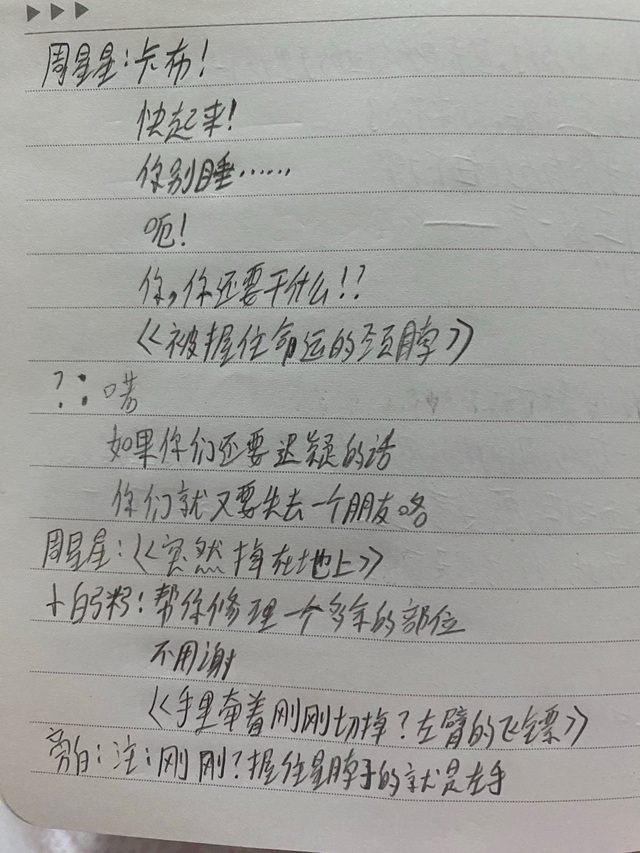 周星星:卡布!
快起来!
你别睡……
呃!
你,你还要干什么!?
《被握住命运的颈脖》
?:啧
如果你们还要迟疑的话
你们就又要失去一个朋友咯
周星星:《突然掉在地上》
帮你修理一个多余的部位
不用谢
《手里牵着刚刚切掉?左臂的飞镖》
旁白:注:刚刚?握住星脖子的就是左手